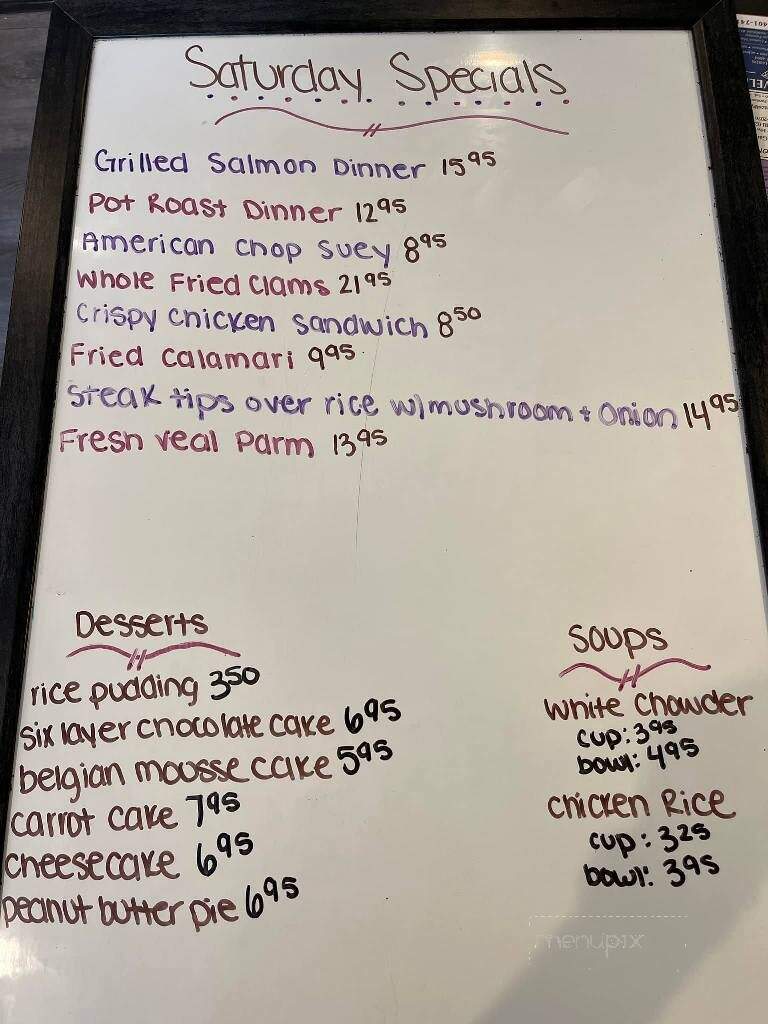 Saturday Specials
Grilled Salmon Dinner 15 95
Pot Roast Dinner 12 95
American chop suey 8 95
Whole Fried Clams 21 95
Crispy chicken sandwich 8 50
Fried Calamari 9 95
steak tips over rice w/mushroom + onion 14 95
Fresh veal Parm 13 95
Desserts
rice pudding 3 50
six layer chocolate cake 6 95
belgian mousse cake 5 95
carrot cake 7 95
cheesecake 6 95
peanut butter pie 6 95
Soups
White Chowder
cup: 3 95
bowl: 4 95
Chicken Rice
cup: 3 25
bowl: 3 95
menupix